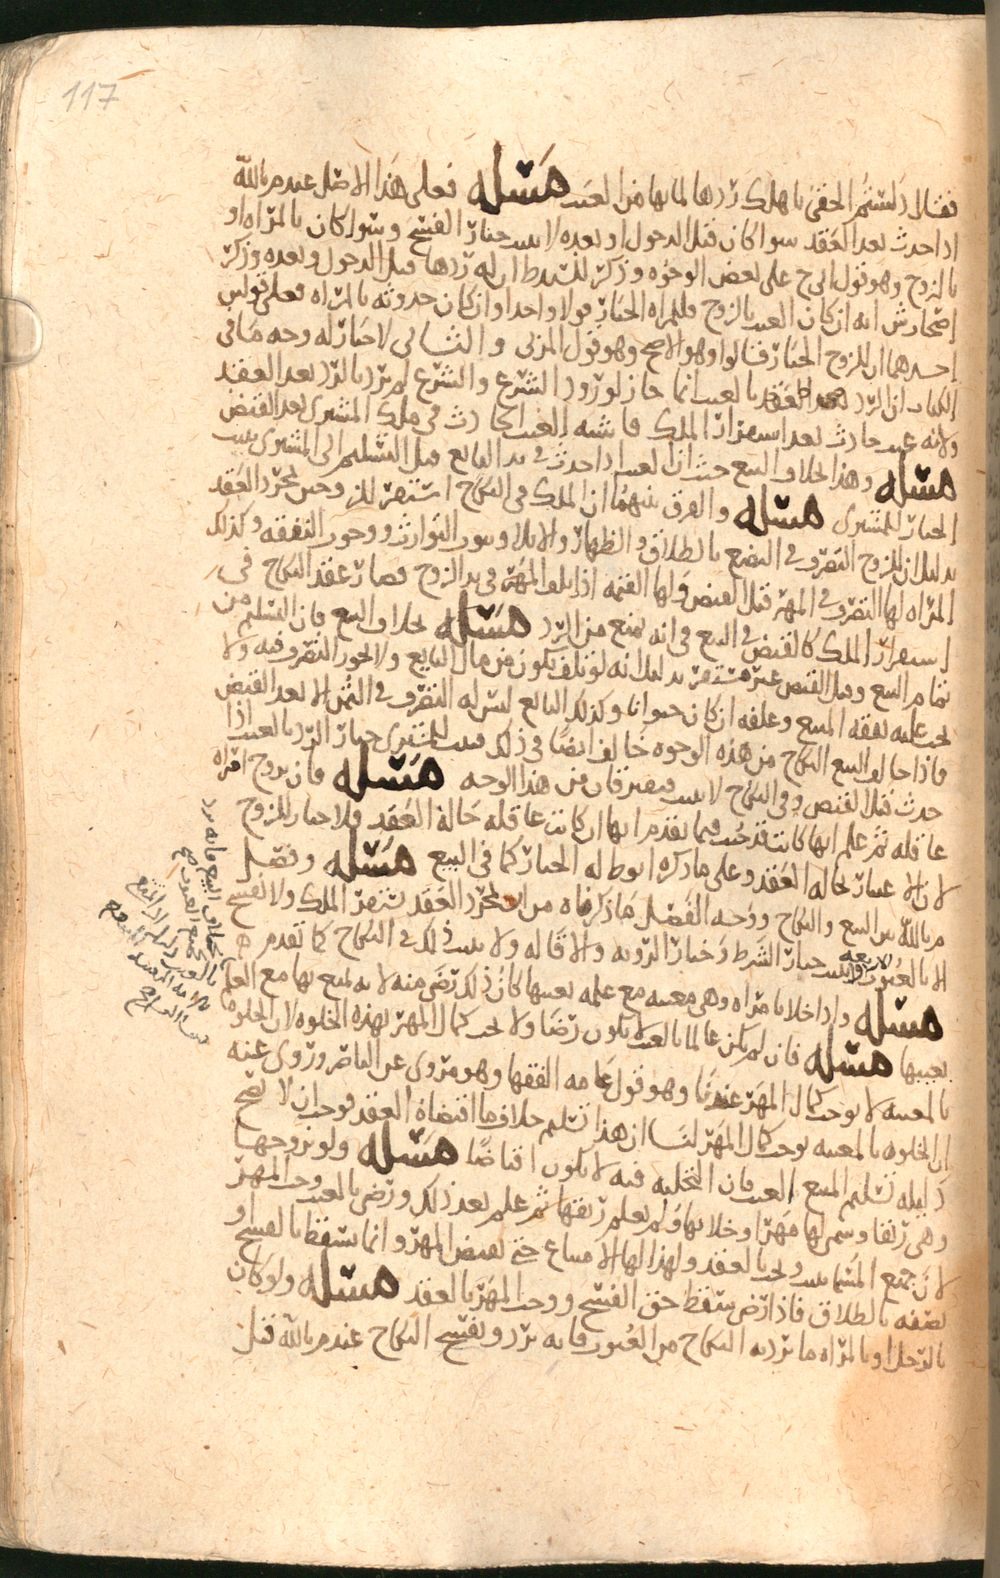 117
فقال دلستم الحقى باهلك ردها لما بها من العيب مسئله فعلى هذا الاصل عند م بالله
اذا حدث بعد العقد سوا كان قبل الدخول او بعده لا يثبت خيار الفسخ وسوا كان بالمراه او
بالزوج وهو قول ابي ح على بعض الوجوه وذكر ان له ردها قبل الدخول وبعده وذكر
اصحاب ش انه ان كان العيب بالزوج فللمراه الخيار قولا واحدا وان كان حدوثه بالمراه فعلى قولين
احدهما ان للزوج الخيار قالوا وهو الاصح وهو قول المزني والثاني لا خيار له وجه ما في
الكتاب ان الرد بعد العقد بالعيب انما جاز لورود الشرع والشرع لم يرد بالرد بعد العقد
ولانه عيب حادث بعد استقرار الملك فاشبه العيب الحادث في ملك المشتري بعد القبض
مسئله وهذا خلاف البيع حيث ان العيب اذا حدث في يد البايع قبل التسليم الى المشتري يثبت
الخيار للمشتري مسئله والفرق بينهما ان الملك في النكاح استقر للزوجين بمجرد العقد
بدليل ان للزوج التصرف في البضع بالطلاق والظهار والايلا وثبوت التوارث ووجوب النفقه وكذلك
المراه لها التصرف في المهر قبل القبض ولها القيمه اذا تلف المهر في يد الزوج فصار عقد النكاح في
استقرار الملك كالقبض في البيع في انه يمنع من الرد مسئله بخلاف البيع فان التسليم من
تمام البيع وقبل القبض غير مستقر بدليل انه لو تلف يكون من مال البايع ولا يجوز التصرف فيه ولا
يجب عليه نفقه المبيع وعلفه ان كان حيوانا وكذلك البايع ليس له التصرف في الثمن الا بعد القبض
فاذا خالف البيع النكاح من هذه الوجوه خالف ايضا في ذلك فيثبت للمشتري خيار الرد بالعيب اذا
حدث قبل القبض وفي النكاح لا يثبت فيفترقان من هذا الوجه مسئله فان تزوج امراه
عاقله ثم علم انها كانت قد جنت فيما تقدم انها ان كانت عاقله حالة العقد فلا خيار للزوج
لان الاعتبار بحاله العقد وعلى ما ذكره ابو ط له الخيار كما في البيع مسئله وفصل
م بالله بين البيع والنكاح ووجه الفصل ما ذكرناه من ان بمجرد العقد تستقر الملك ولا يفسخ
الا بالعيوب الاربعه ولا يثبت خيار الشرط وخيار الرويه والاقاله ولا يثبت ذلك في النكاح كما تقدم
مسئله واذا خلا بامراه وهي معيبه مع علمه بعيبها كان ذلك رضى منه لانه تمتع بها مع العلم
بعيبها مسئله فان لم يكن عالما بالعيب لا يكون رضا ولا يجب كمال المهر بهذه الخلوه لان الخلوه
بالمعيبه لا يوجب كمال المهر عندنا وهو قول عامه الفقها وهو مروي عن الناصر وروي عنه
ان الخلوه بالمعيبه توجب كمال المهر لنا ان هذا تسليم خلاف ما اقتضاه العقد فوجب ان لا يصح
دليله تسليم المبيع المعيب فان التخليه فيه لا يكون اقباضا مسئله ولو تزوجها
وهي رتقا وسمى لها مهرا وخلا بها ولم يعلم رتقها ثم علم بعد ذلك ورضي بالعيب وجب المهر
لان جميع المسما يثبت ويجب بالعقد ولهذا لها الامتناع حتى تقبض المهر وانما يسقط بالفسخ او
نصفه بالطلاق فاذا رضي سقط حق الفسخ ووجب المهر بالعقد مسئله ولو كان
بالرجل او بالمراه ما يرد به النكاح من العيوب فانه يرد ويفسخ النكاح عند م بالله قبل
بخلاف البيع فانه يرد
بجميع العيوب